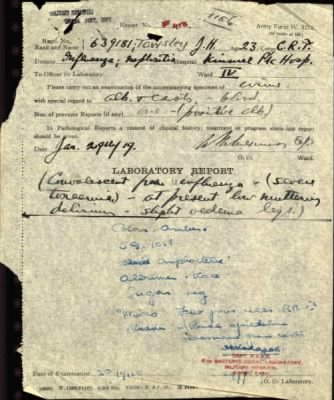 Report No.
1156
Army Form W. 3212.
Regtl. No. 639181
Rank and Name Townsley J.H. Age 23. Corps C.R.T.
Disease Influenza; nephritis Hospital Kinmel Pk Hosp.
To Officer i/c Laboratory. Ward IV
Please carry out an examination of the accompanying specimen of urine
with special regard to alb. & casts - blood
Nos. of previous Reports (if any) one - (positive alb)
In Pathological Reports a resumé of clinical history, treatment or progress since last report
should be given.
Date Jan. 29th/19.
O. i/c Ward.
LABORATORY REPORT
(Convalescent from influenza - (severe
toxaemia) - at present low muttering
delirium - slight oedema legs.)
Colour. Amber
S.G. 1018
Albumen
Sugar neg
Micro Few pus cells
Date of Examination
MILITARY HOSPITAL
O. i/c Laboratory.